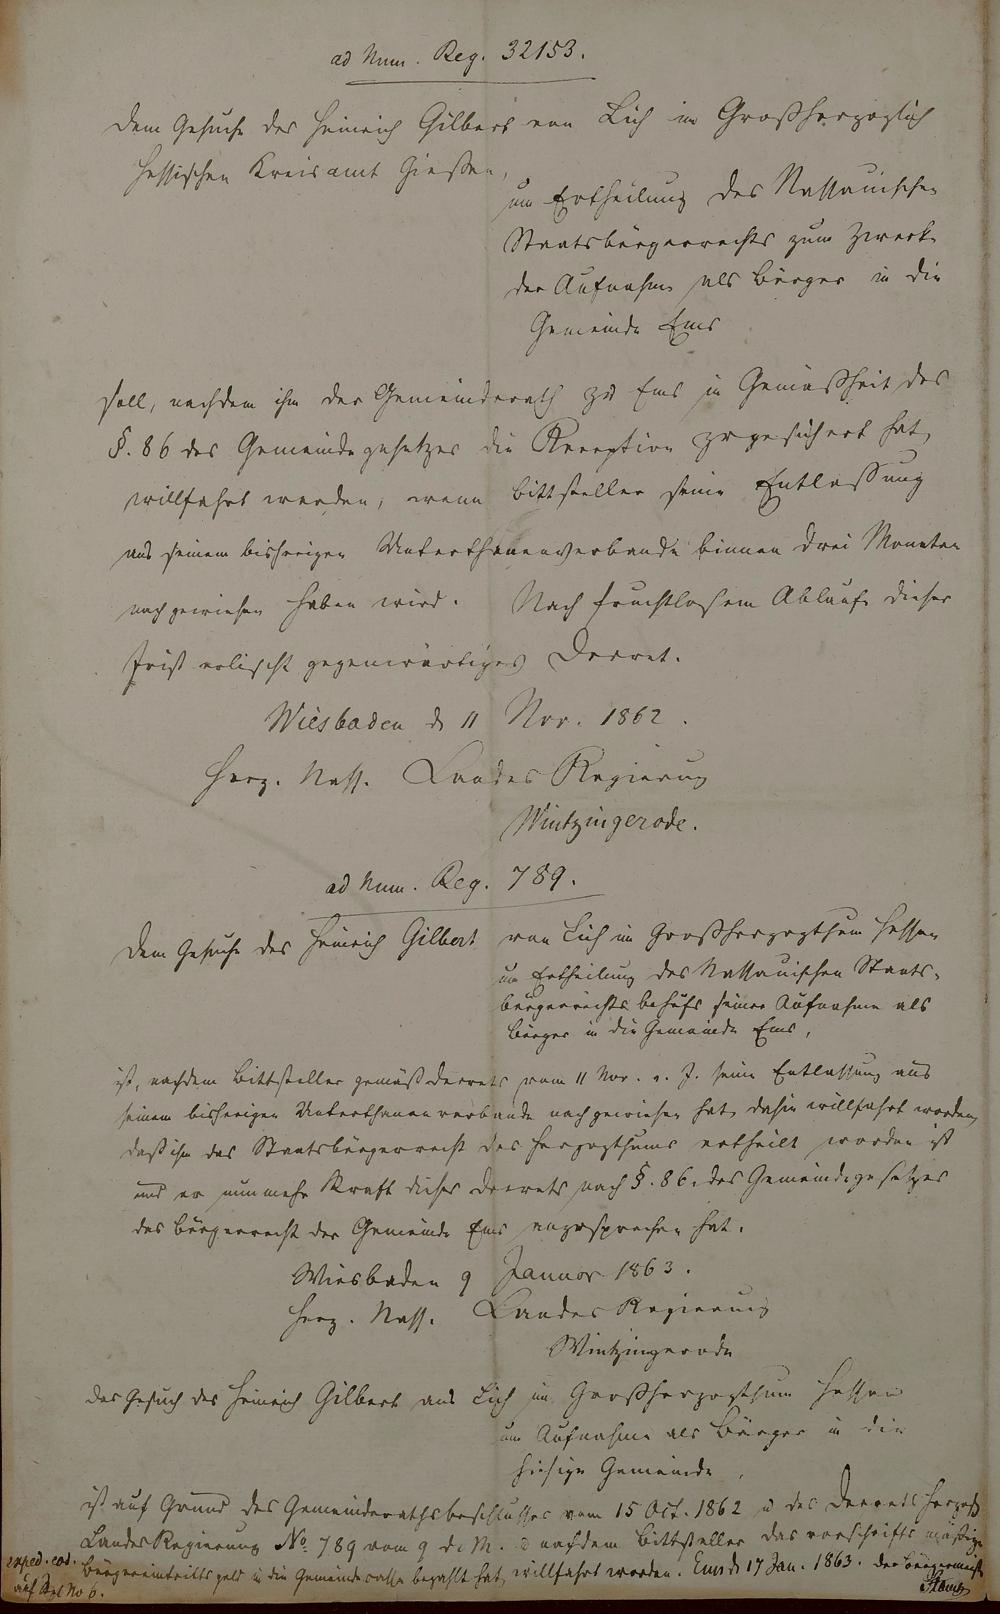 ad Num. Reg. 32153.
Dem Gesuche des Heinrich Gilbert von Lich im Großherzoglich
Hessischen Kreisamt Giessen,
um Ertheilung des Nassauischen
Staatsbürgerrechts zum Zwecke
der Aufnahme als Bürger in die
Gemeinde Ems
soll, nachdem ihm der Gemeinderath zu Ems in Gemäßheit des
§. 86 des Gemeindegesetzes die Reception zugesichert hat,
willfahrt werden, wenn Bittsteller seine Entlassung
aus seinem bisherigen Unterthanenverbande binnen drei Monaten
nachgewiesen haben wird. Nach fruchtlosem Ablaufe dieser
Frist erlischt gegenwärtiges Decret.
Wiesbaden d 11 Nov. 1862.
Herz. Nass. Landes Regierung
Wintzingerode.
ad Num. Reg. 789.
Dem Gesuche des Heinrich Gilbert von Lich im Großherzogthum Hessen
um Ertheilung des Nassauischen Staats-
bürgerrechts behufs seiner Aufnahme als
Bürger in die Gemeinde Ems,
ist, nachdem Bittsteller gemäß Decrets vom 11 Nov. v. J. seine Entlassung aus
seinem bisherigen Unterthanenverbande nachgewiesen hat dahin willfahrt worden,
daß ihm das Staatsbürgerrecht des Herzogthums ertheilt worden ist
und er nunmehr Kraft dieses Decrets nach §. 86. des Gemeindegesetzes
das Bürgerrecht der Gemeinde Ems anzusprechen hat.
Wiesbaden 9 Januar 1863.
Herz. Nass. Landes Regierung
Wintzingerode
Das Gesuch des Heinrich Gilbert aus Lich im Großherzogthum Hessen
um Aufnahme als Bürger in die
hiesige Gemeinde,
ist auf Grund des Gemeinderathsbeschlusses vom 15 Oct. 1862 u des Decrets Herzogl
Landes Regierung No. 789 vom 9 d. M. u nachdem Bittsteller das vorschriftsmäßige
Bürgereintrittsgeld in die Gemeindecasse bezahlt hat, willfahrt worden. Ems d 17 Jan. 1863. Der Bürgermeister
exped. eod.
auf No 6.